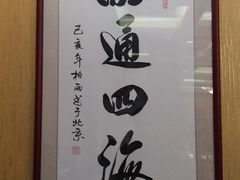 通四海
己亥年柏
于北京